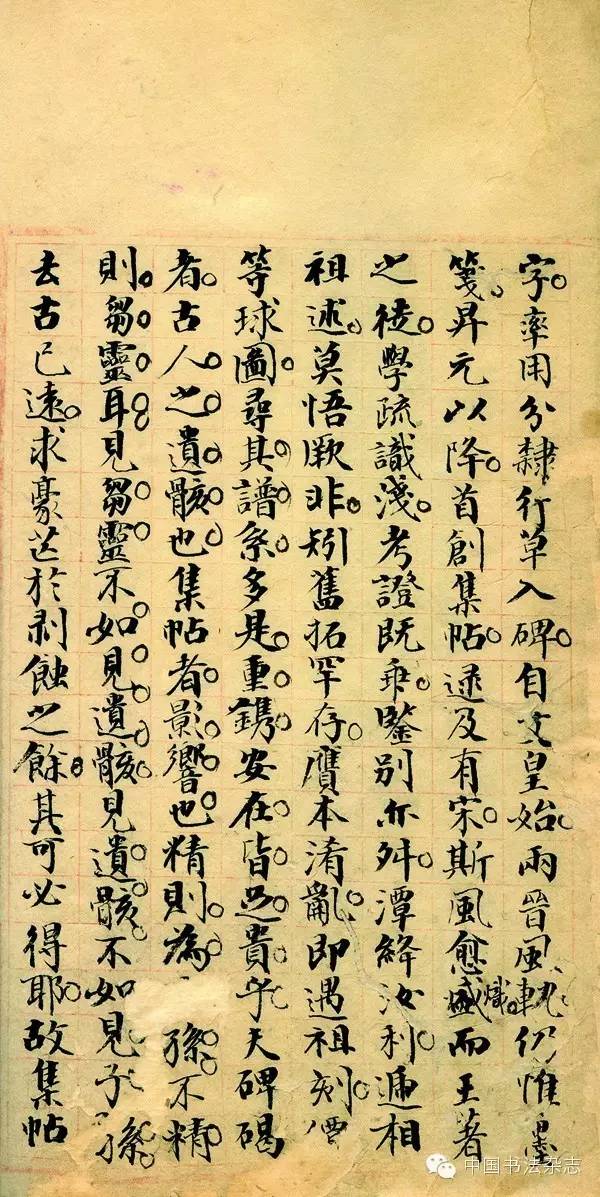 字率用分隸行草入碑自文皇始兩晉風軌仍惟臺
箋昇元以降首創集帖逮及有宋斯風愈盛熾而王著
之徒學疏識淺考證既乖鑒別亦舛潭絳汝利遞相
祖述莫悟厥非矧舊拓罕存贋本淆亂即遇祖刻價
等球圖尋其譜系多是重鐫安在皆足貴乎夫碑碣
者古人之遺骸也集帖者影響也精則為孫不精
則芻靈耳見芻靈不如見遺骸見遺骸不如見子孫
去古已遠求豪芒於剥蝕之餘其可必得耶故集帖
中国书法杂志